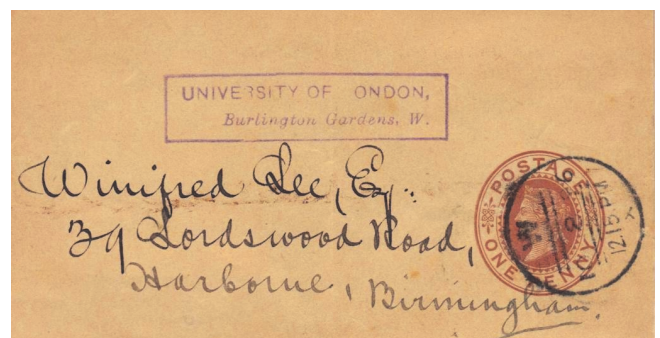 UNIVERSITY OF ONDON,
Burlington Gardens, W.
Winifred Lee, Esq:
39 Lordswood Road,
Harborne, Birmingham.
POSTAGE
ONE PENNY
12.15 PM